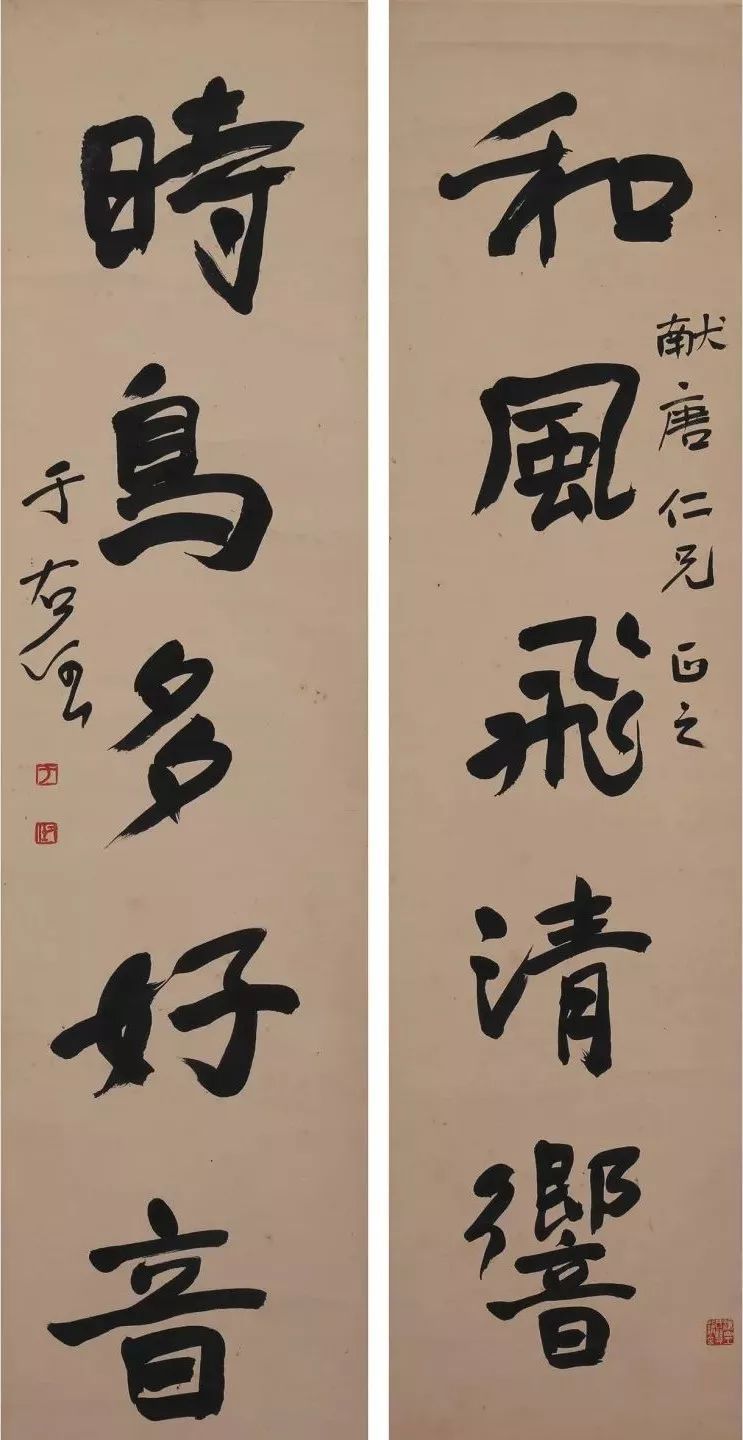 和風飛清響
献唐仁兄 正之
時鳥多好音
于右任